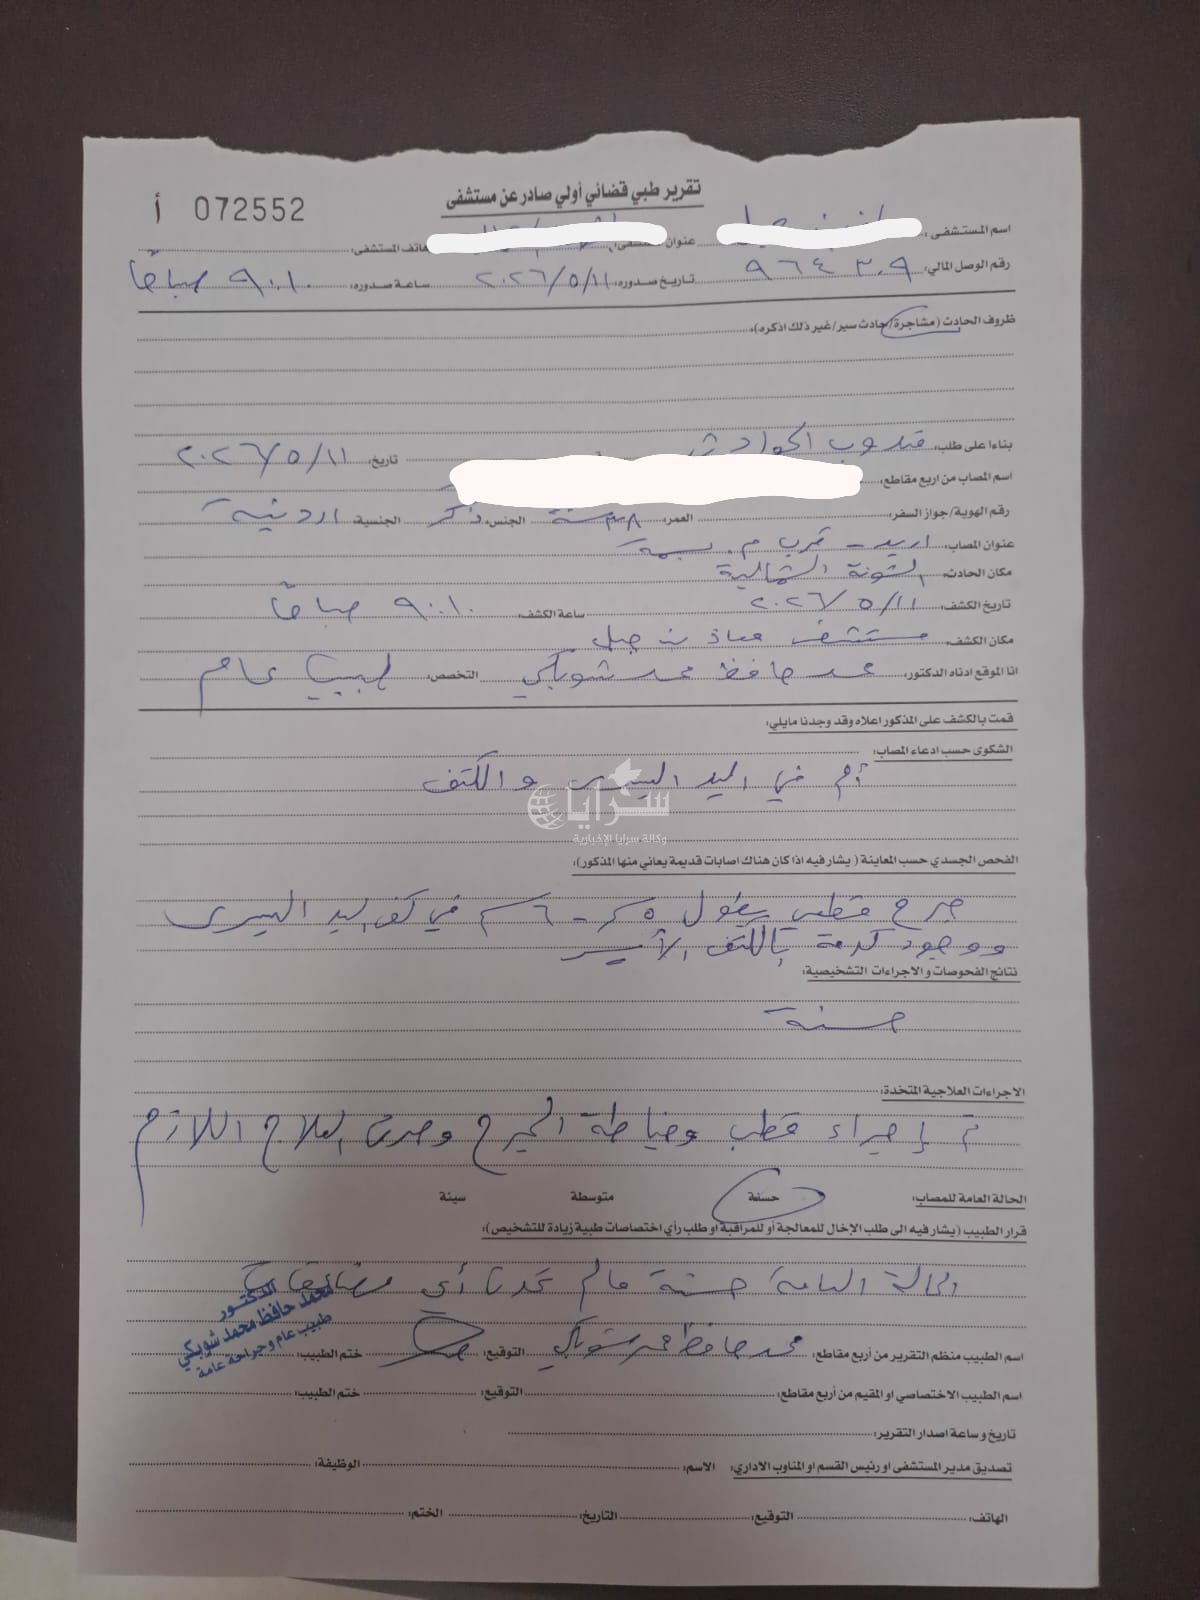 تقرير طبي قضائي أولي صادر عن مستشفى
072552 أ
اسم المستشفى: عنوان المستشفى: هاتف المستشفى:
رقم الوصل المالي: ٩٦٤٣٠٩ تاريخ صدوره: ٢٠٢٦/٥/١١ ساعة صدوره: ٩٠:١٠ صباحًا
ظروف الحادث (مشاجرة/حادث سير/غير ذلك اذكره):
بناءا على طلب: مندوب الحوادث تاريخ: ٢٠٢٦/٥/١١
اسم المصاب من اربع مقاطع:
رقم الهوية/جواز السفر: العمر: ٣٨ سنة الجنس: ذكر الجنسية: اردنية
عنوان المصاب: اربد - قرب م. بسمة
مكان الحادث: الشونة الشمالية
تاريخ الكشف: ٢٠٢٦/٥/١١ ساعة الكشف: ٩٠:١٠ صباحًا
مكان الكشف: مستشفى معاذ بن جبل
انا الموقع ادناه الدكتور: محمد حافظ محمد شوبكي التخصص: طبيب عام
قمت بالكشف على المذكور اعلاه وقد وجدنا مايلي:
الشكوى حسب ادعاء المصاب:
ألم في اليد اليسرى والكتف
سرايا
وكالة سرايا الإخبارية
الفحص الجسدي حسب المعاينة (يشار فيه اذا كان هناك اصابات قديمة يعاني منها المذكور):
جرح قطعي بطول ٥ - ٦ سم في كف اليد اليسرى
ووجود كدمة بالكتف الأيسر
نتائج الفحوصات والاجراءات التشخيصية:
حسنة
الاجراءات العلاجية المتخذة:
تم إجراء قطب وخياطة الجرح وصرف العلاج اللازم
الحالة العامة للمصاب: حسنة متوسطة سيئة
قرار الطبيب (يشار فيه الى طلب الإخال للمعالجة أو للمراقبة او طلب رأي اختصاصات طبية زيادة للتشخيص):
الحالة العامة حسنة مالم تحدث أي مضاعفات
الدكتور
محمد حافظ محمد شوبكي
طبيب عام وجراحة عامة
اسم الطبيب منظم التقرير من أربع مقاطع: محمد حافظ محمد شوبكي التوقيع: ختم الطبيب:
اسم الطبيب الاختصاصي او المقيم من أربع مقاطع: التوقيع: ختم الطبيب:
تاريخ وساعة اصدار التقرير:
تصديق مدير المستشفى او رئيس القسم او المناوب الاداري: الاسم: الوظيفة:
الهاتف: التوقيع: التاريخ: الختم: